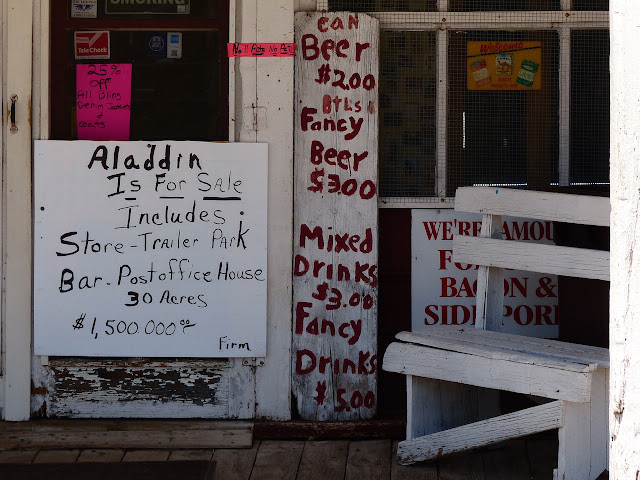 SMOKING
TeleCheck
25%
off
All Bling
Denim Jackets
and
Coats
Aladdin
Is For Sale
Includes:
Store-Trailer Park
Bar-Postoffice House
30 Acres
$1,500.000 00
Firm
CAN
Beer
$2.00
BTLS
Fancy
Beer
$3.00
Mixed
Drinks
$3.00
Fancy
Drinks
$5.00
Welcome
WE'RE FAMOU
FO
BACON &
SIDE POR